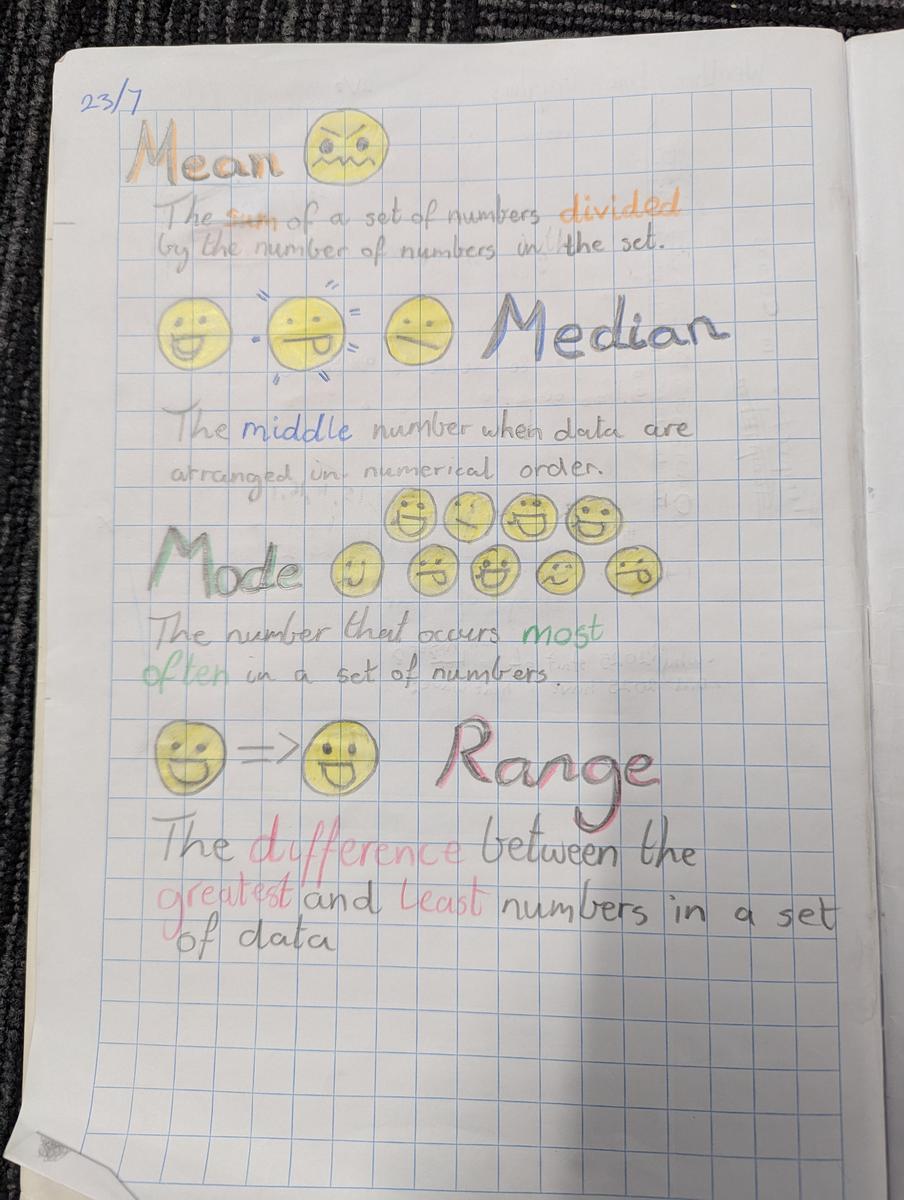 23/7
Mean
The sum of a set of numbers divided
by the number of numbers in the set.
Median
The middle number when data are
arranged in numerical order.
Mode
The number that occurs most
often in a set of numbers.
=> Range
The difference between the
greatest and least numbers in a set
of data